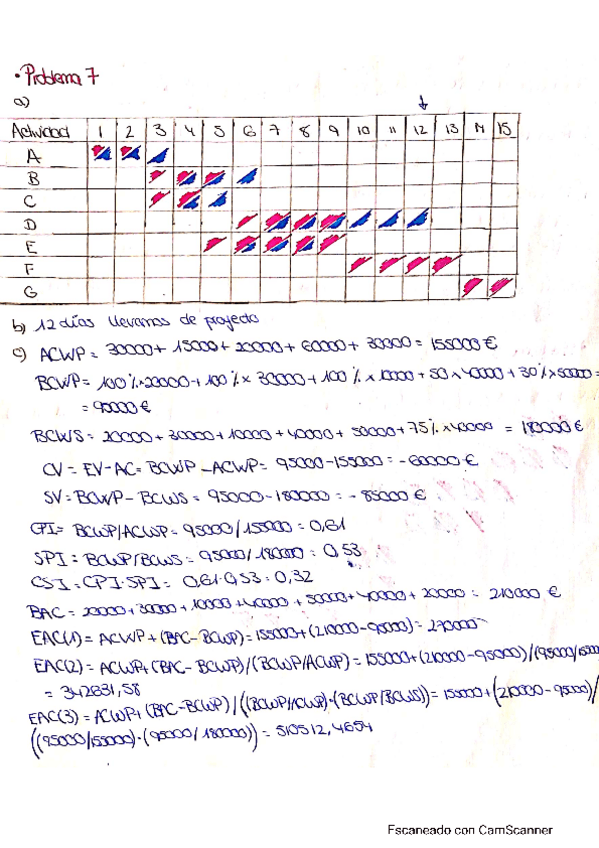 • Problema 7
a)
Actividad 1 2 3 4 5 6 7 8 9 10 11 12 13 14 15
A
B
C
D
E
F
G
b) 12 días llevamos de proyecto
c) ACWP = 30000 + 15000 + 20000 + 60000 + 30000 = 155000 €
BCWP = 100%·20000 + 100% × 30000 + 100% × 10000 + 50 × 40000 + 30% × 50000 =
= 90000 €
BCWS = 20000 + 30000 + 10000 + 40000 + 50000 + 75% × 40000 = 180000 €
CV = EV - AC = BCWP - ACWP = 95000 - 155000 = - 60000 €
SV = BCWP - BCWS = 95000 - 180000 = - 85000 €
CPI = BCWP/ACWP = 95000/155000 = 0,61
SPI = BCWP/BCWS = 95000/180000 = 0,53
CSI = CPI·SPI = 0,61·0,53 = 0,32
BAC = 20000 + 30000 + 10000 + 40000 + 50000 + 40000 + 20000 = 210000 €
EAC(1) = ACWP + (BAC - BCWP) = 155000 + (210000 - 95000) = 270000
EAC(2) = ACWP + (BAC - BCWP)/(BCWP/ACWP) = 155000 + (210000 - 95000)/(95000/155000
= 342631,58
EAC(3) = ACWP + (BAC - BCWP)/((BCWP/ACWP)·(BCWP/BCWS)) = 155000 + (210000 - 95000)/
((95000/155000)·(95000/180000)) = 510512,4654
Escaneado con CamScanner